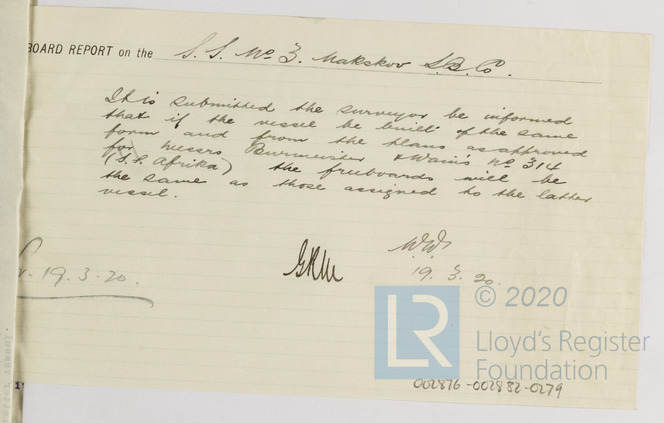 BOARD REPORT on the S.S. No 3. Makskov S.B. Co.
It is submitted the surveyor be informed
that if the vessel be built of the same
form and from the plans as approved
for Messrs Burmeister & Wain's No 314
(S.S. Afrika) the freeboards will be
the same as those assigned to the latter
vessel.
W.W.
19.3.20.
19.3.20.
LR
© 2020
Lloyd's Register
Foundation
002876-002882-0279